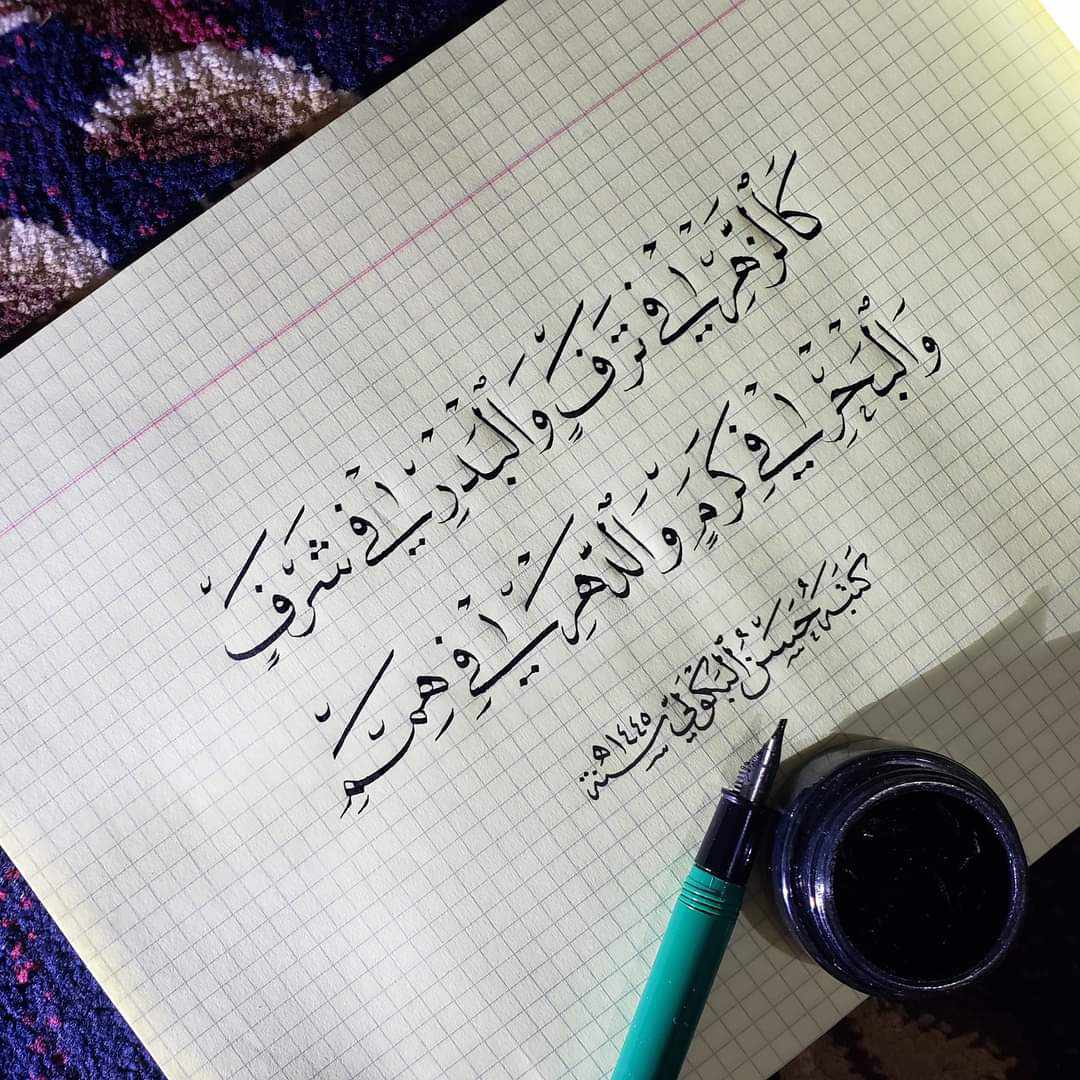 كَالزَّهْرِ فِي تَرَفٍ وَالْبَدْرِ فِي شَرَفٍ
وَالْبَحْرِ فِي كَرَمٍ وَالدَّهْرِ فِي هِمَمِ
كتبه حسن البكولي سنة ١٤٤٥هـ